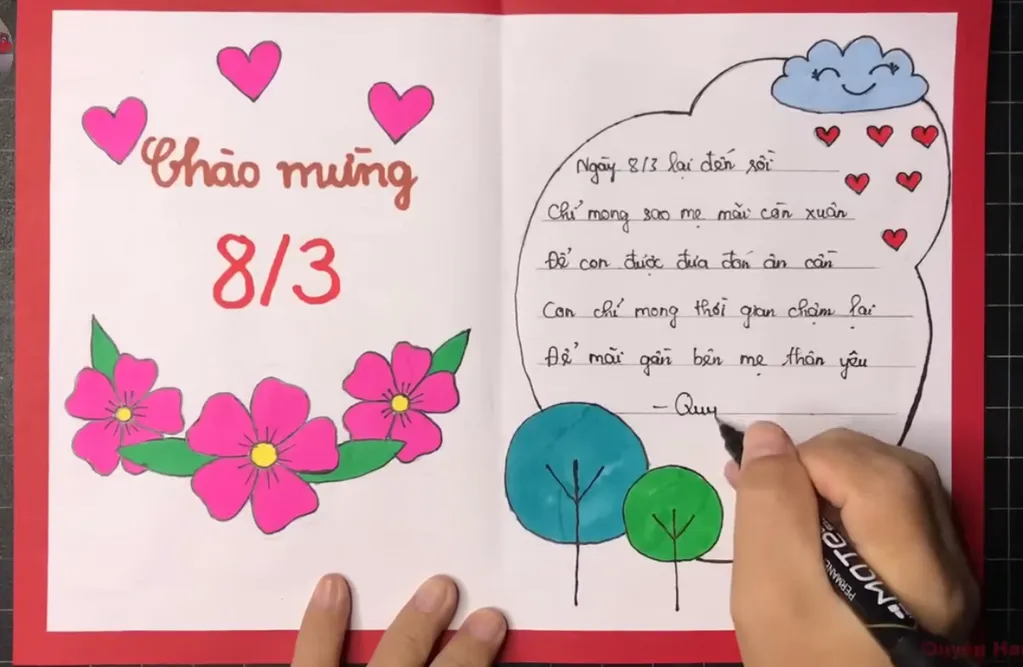 Chào mừng
8/3
Ngày 8/3 lại đến rồi
Chỉ mong sao mẹ mãi còn xuân
Để con được đưa đón ân cần
Con chỉ mong thời gian chậm lại
Để mãi gần bên mẹ thân yêu
- Quy
PERMANE